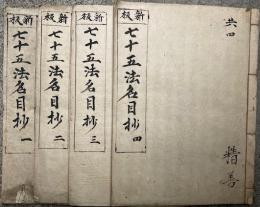 新板
七十五法名目抄 一
新板
七十五法名目抄 二
新板
七十五法名目抄 三
新板
七十五法名目抄 四
共四